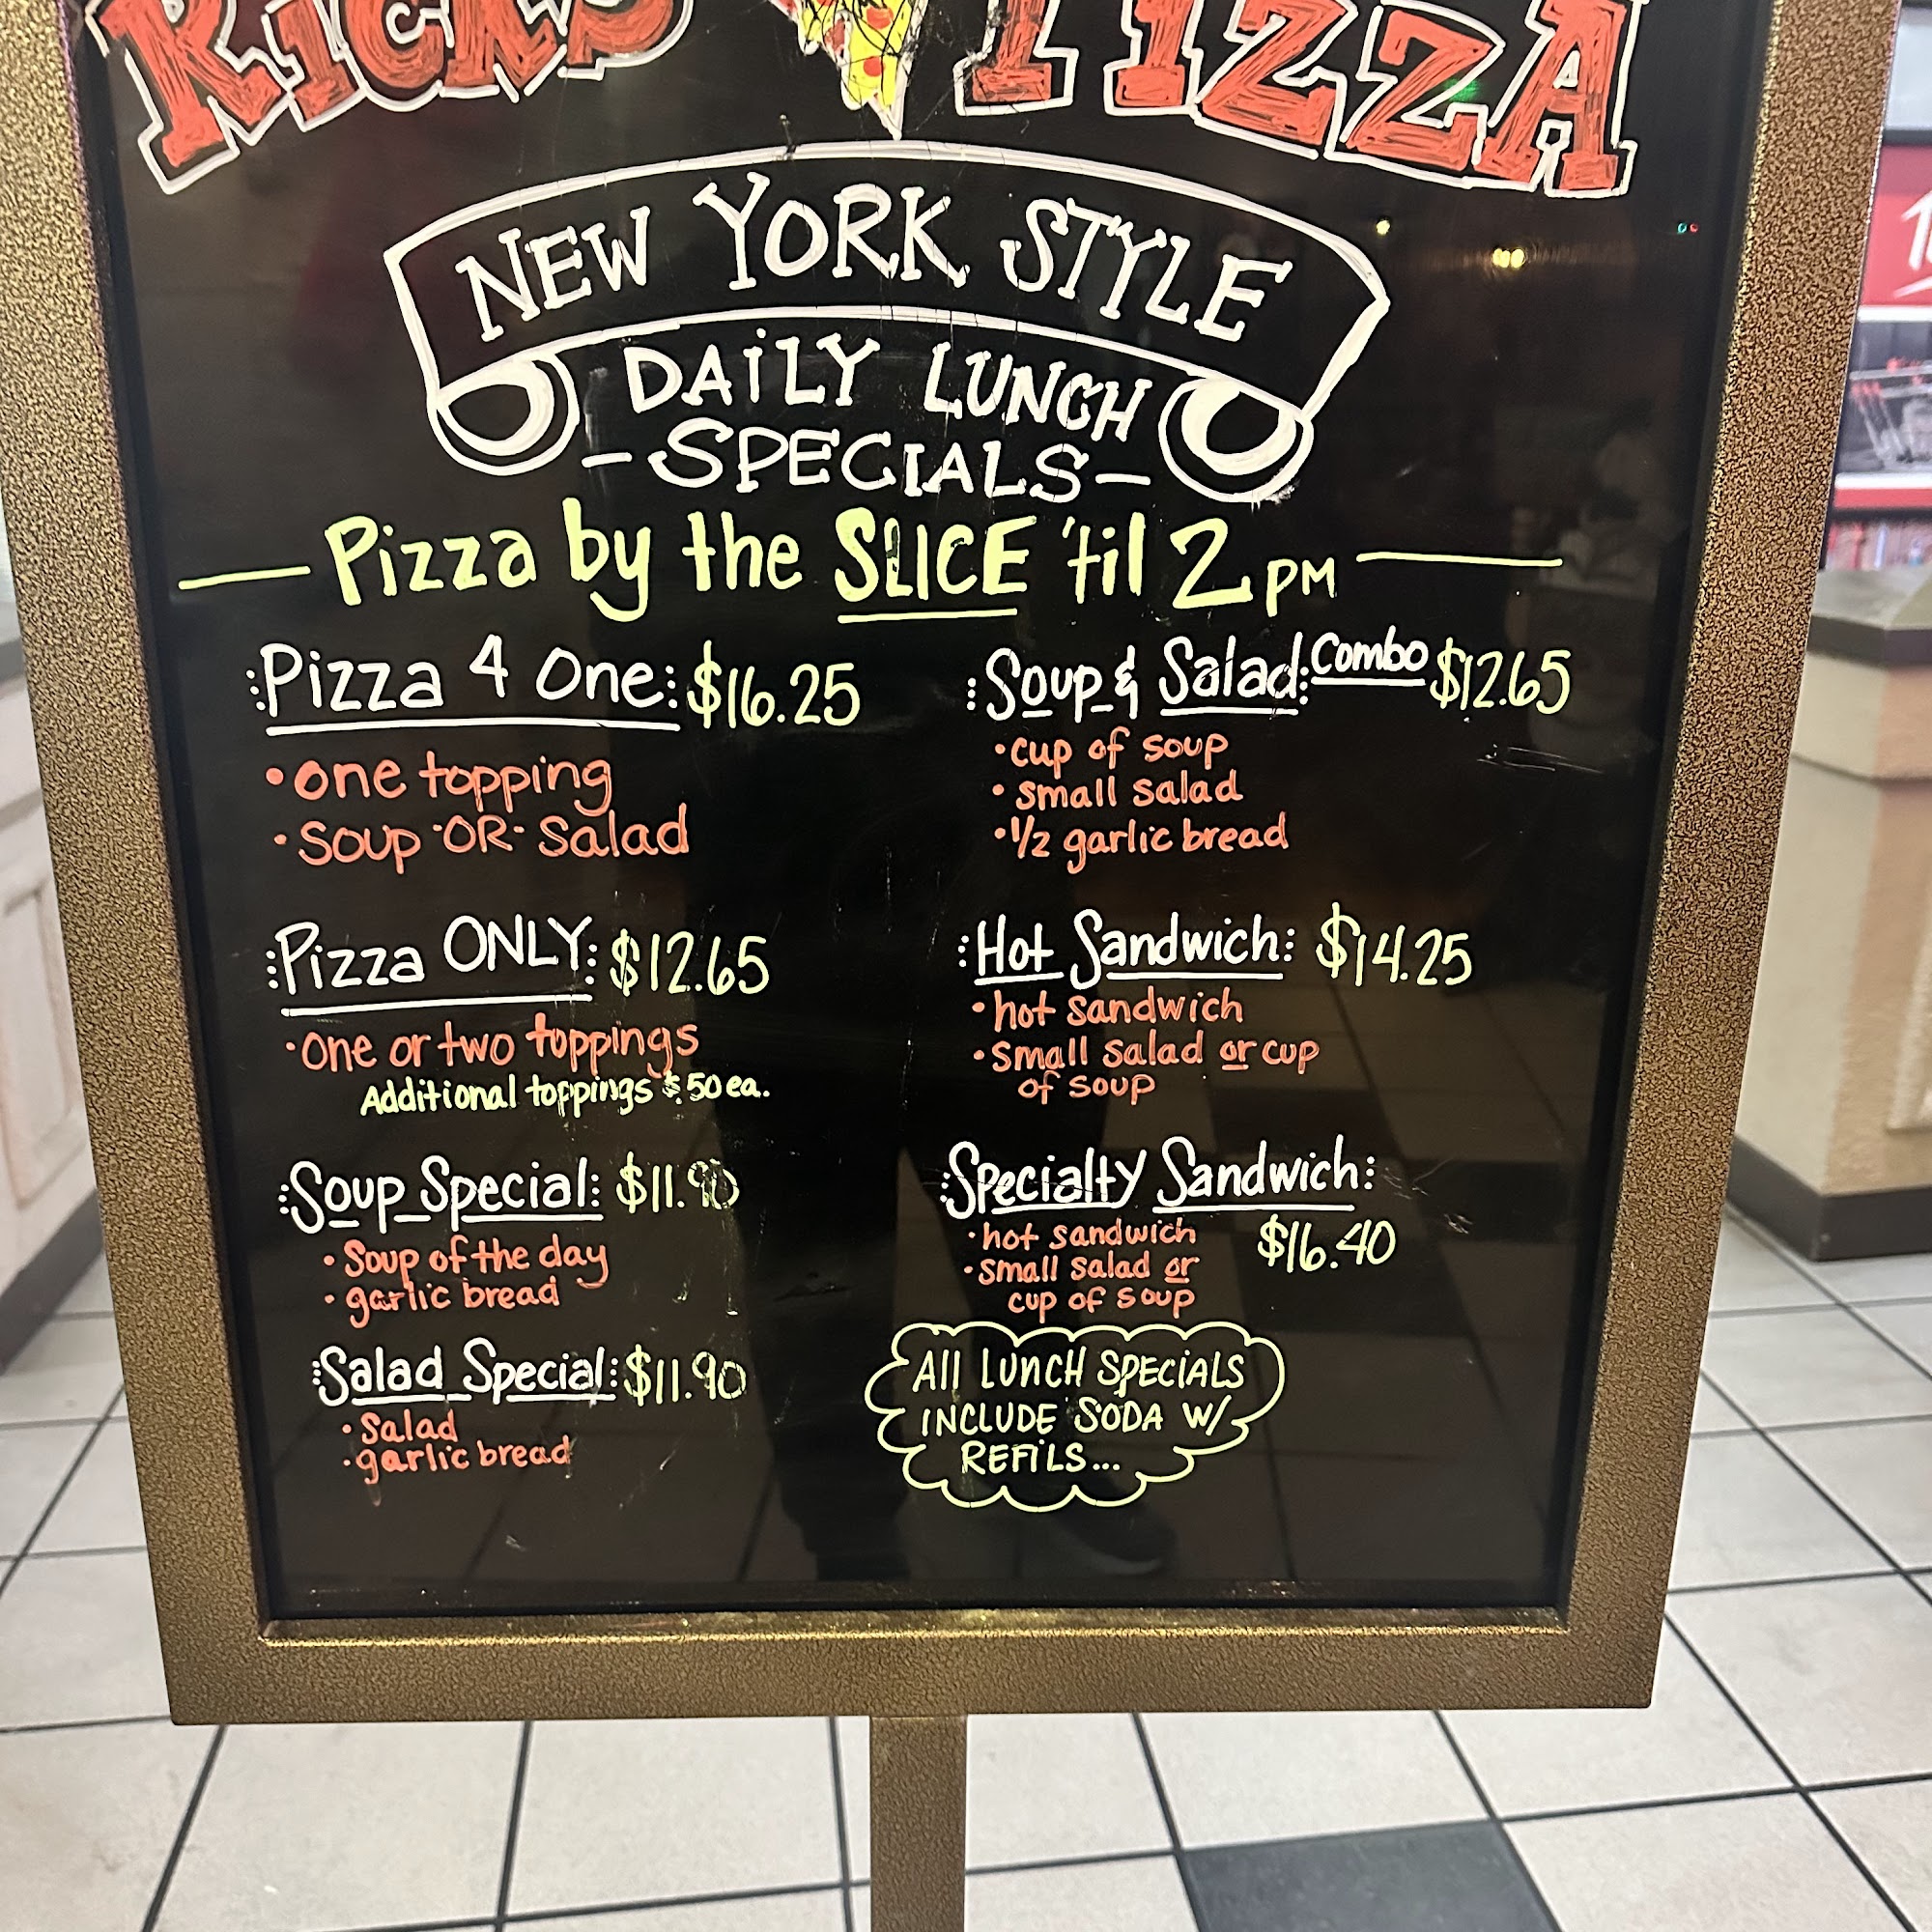 RICK'S PIZZA
NEW YORK STYLE
DAILY LUNCH
-SPECIALS-
Pizza by the SLICE 'til 2 PM
Pizza 4 One: $16.25
• one topping
• soup -OR- salad
Pizza ONLY: $12.65
• one or two toppings
Additional toppings $.50 ea.
Soup Special: $11.90
• Soup of the day
• garlic bread
Salad Special: $11.90
• salad
• garlic bread
Soup & Salad: Combo $12.65
• cup of soup
• small salad
• 1/2 garlic bread
Hot Sandwich: $14.25
• hot sandwich
• small salad or cup
of soup
Specialty Sandwich:
$16.40
• hot sandwich
• small salad or
cup of soup
All LUNCH SPECiALS
INCLUDE SODA W/
REFiLS...